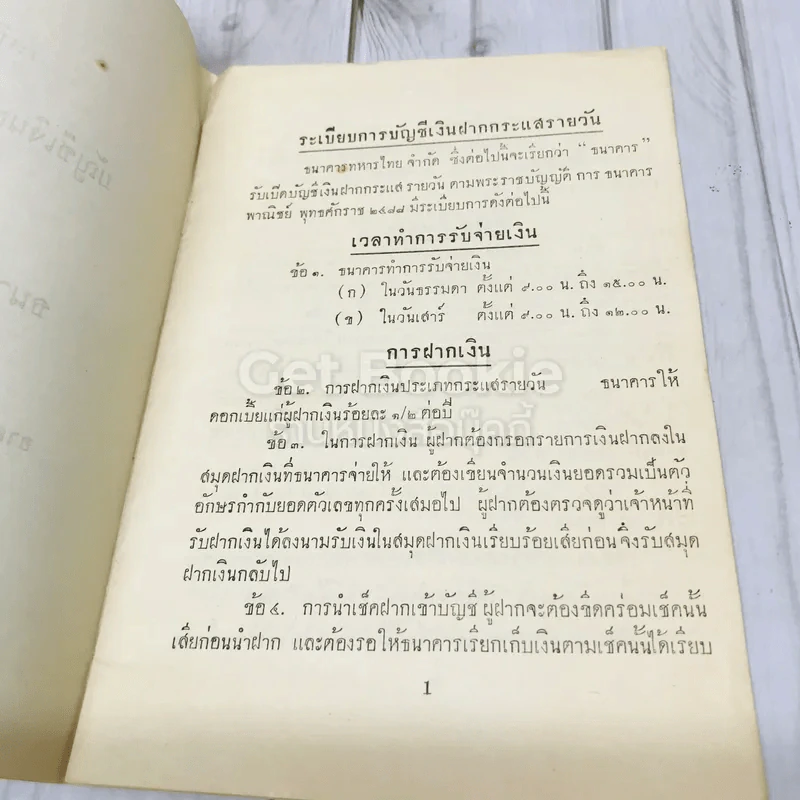 ระเบียบการบัญชีเงินฝากกระแสรายวัน
ธนาคารทหารไทย จำกัด ซึ่งต่อไปนี้จะเรียกว่า “ ธนาคาร ”
รับเปิดบัญชีเงินฝากกระแส รายวัน ตามพระราชบัญญัติ การ ธนาคาร
พาณิชย์ พุทธศักราช ๒๔๘๘ มีระเบียบการดังต่อไปนี้
เวลาทำการรับจ่ายเงิน
ข้อ ๑. ธนาคารทำการรับจ่ายเงิน
(ก) ในวันธรรมดา ตั้งแต่ ๙.๐๐ น. ถึง ๑๕.๐๐ น.
(ข) ในวันเสาร์ ตั้งแต่ ๙.๐๐ น. ถึง ๑๒.๐๐ น.
การฝากเงิน
Get Bookie
ข้อ ๒. การฝากเงินประเภทกระแสรายวัน ธนาคารให้
ดอกเบี้ยแก่ผู้ฝากเงินร้อยละ ๑/๒ ต่อปี
ข้อ ๓. ในการฝากเงิน ผู้ฝากต้องกรอกรายการเงินฝากลงใน
สมุดฝากเงินที่ธนาคารจ่ายให้ และต้องเขียนจำนวนเงินยอดรวมเป็นตัว
อักษรกำกับยอดตัวเลขทุกครั้งเสมอไป ผู้ฝากต้องตรวจดูว่าเจ้าหน้าที่
รับฝากเงินได้ลงนามรับเงินในสมุดฝากเงินเรียบร้อยเสียก่อน จึงรับสมุด
ฝากเงินกลับไป
ข้อ ๔. การนำเช็คฝากเข้าบัญชี ผู้ฝากจะต้องขีดคร่อมเช็คนั้น
เสียก่อนนำฝาก และต้องรอให้ธนาคารเรียกเก็บเงินตามเช็คนั้นได้เรียบ
1